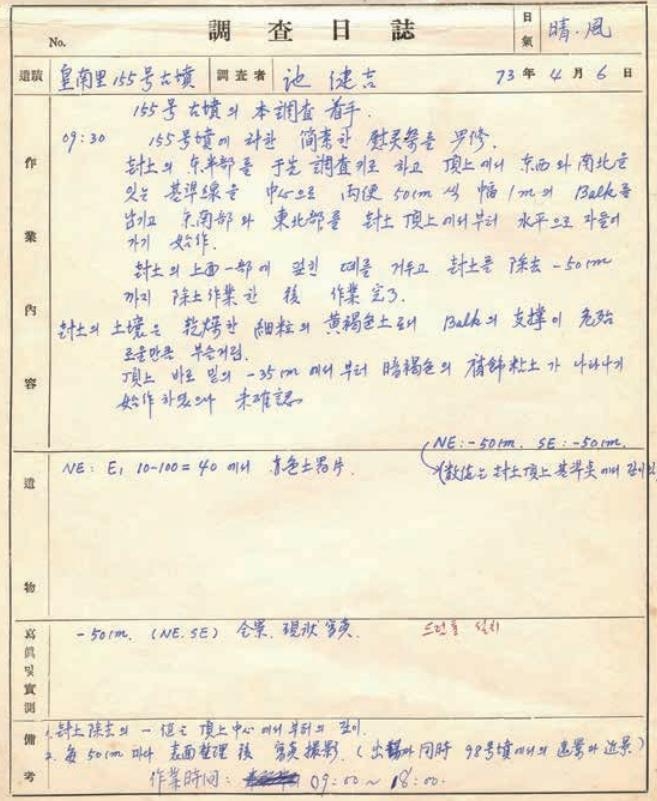 No. 調査日誌 日氣 晴·風
遺蹟 皇南里 155号古墳 調査者 池健吉 73年 4月 6日
作業內容
155号 古墳의 本調査 着手.
09:30 155号墳에 관한 简素한 慰灵祭를 男修.
封土의 东半部를 于先 調査키로 하고 頂上에서 东西와 南北을
잇는 基準線을 中心으로 両便 50cm 씩 幅 1m의 Balk를
남기고 东南部와 東北部를 封土 頂上에서부터 水平으로 파들어
가기 始作.
封土의 上面一部에 덮힌 떼를 거두고 封土를 除去 -50cm
까지 除土作業한 後 作業 完了.
封土의 土壤은 乾燥한 細粒의 黄褐色土로서 Balk의 支撑이 危殆
로울만큼 부슬거림.
頂上 바로 밑의 -35cm 에서부터 暗褐色의 腐飾粘土가 나타나기
始作하였으나 未確認
遺物
NE: -50cm. SE: -50cm.
(数值는 封土頂上 基準点에서 깊이임
NE: E, 10-100=40 에서 青色土器片.
寫眞및實測
-50cm. (NE. SE) 全景. 現狀 寫真. 드런통 설치
備考
1. 封土除去의 - 值는 頂上中心에서부터의 깊이.
2. 每 50cm 마다 表面整理 後 寫真 撮影. ( 과 同時 98号墳에서의 遠景과 近景.)
作業時间: 09:00~18:00.